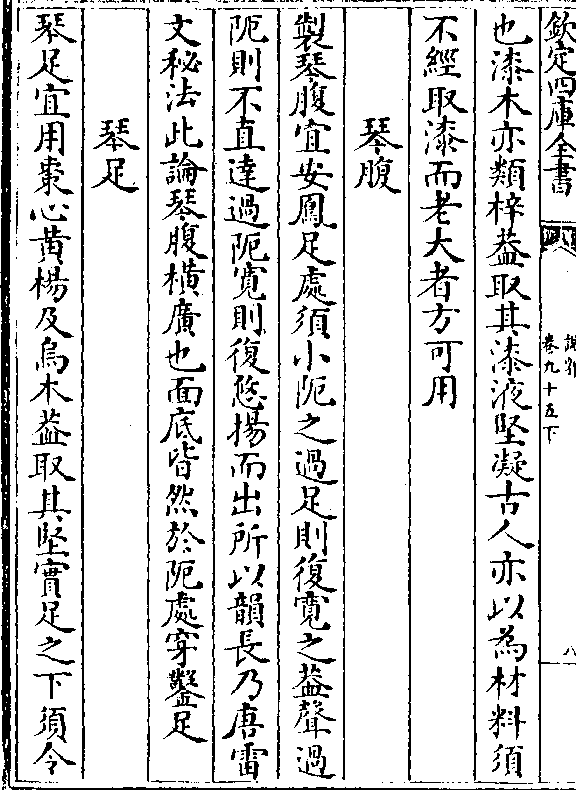 欽定四庫全書
說郛
卷九十五下
八
也漆木亦類梓葢取其漆液堅凝古人亦以為材料須
不經取漆而老大者方可用
琴腹
製琴腹宜安鳳足處須小阨之過足則復寛之葢聲過
阨則不直達過阨寛則復悠揚而出所以韻長乃唐雷
文秘法此論琴腹横廣也面底皆然於阨處穿鑿足
琴足
琴足宜用棗心黄楊及烏木葢取其堅實足之下須令